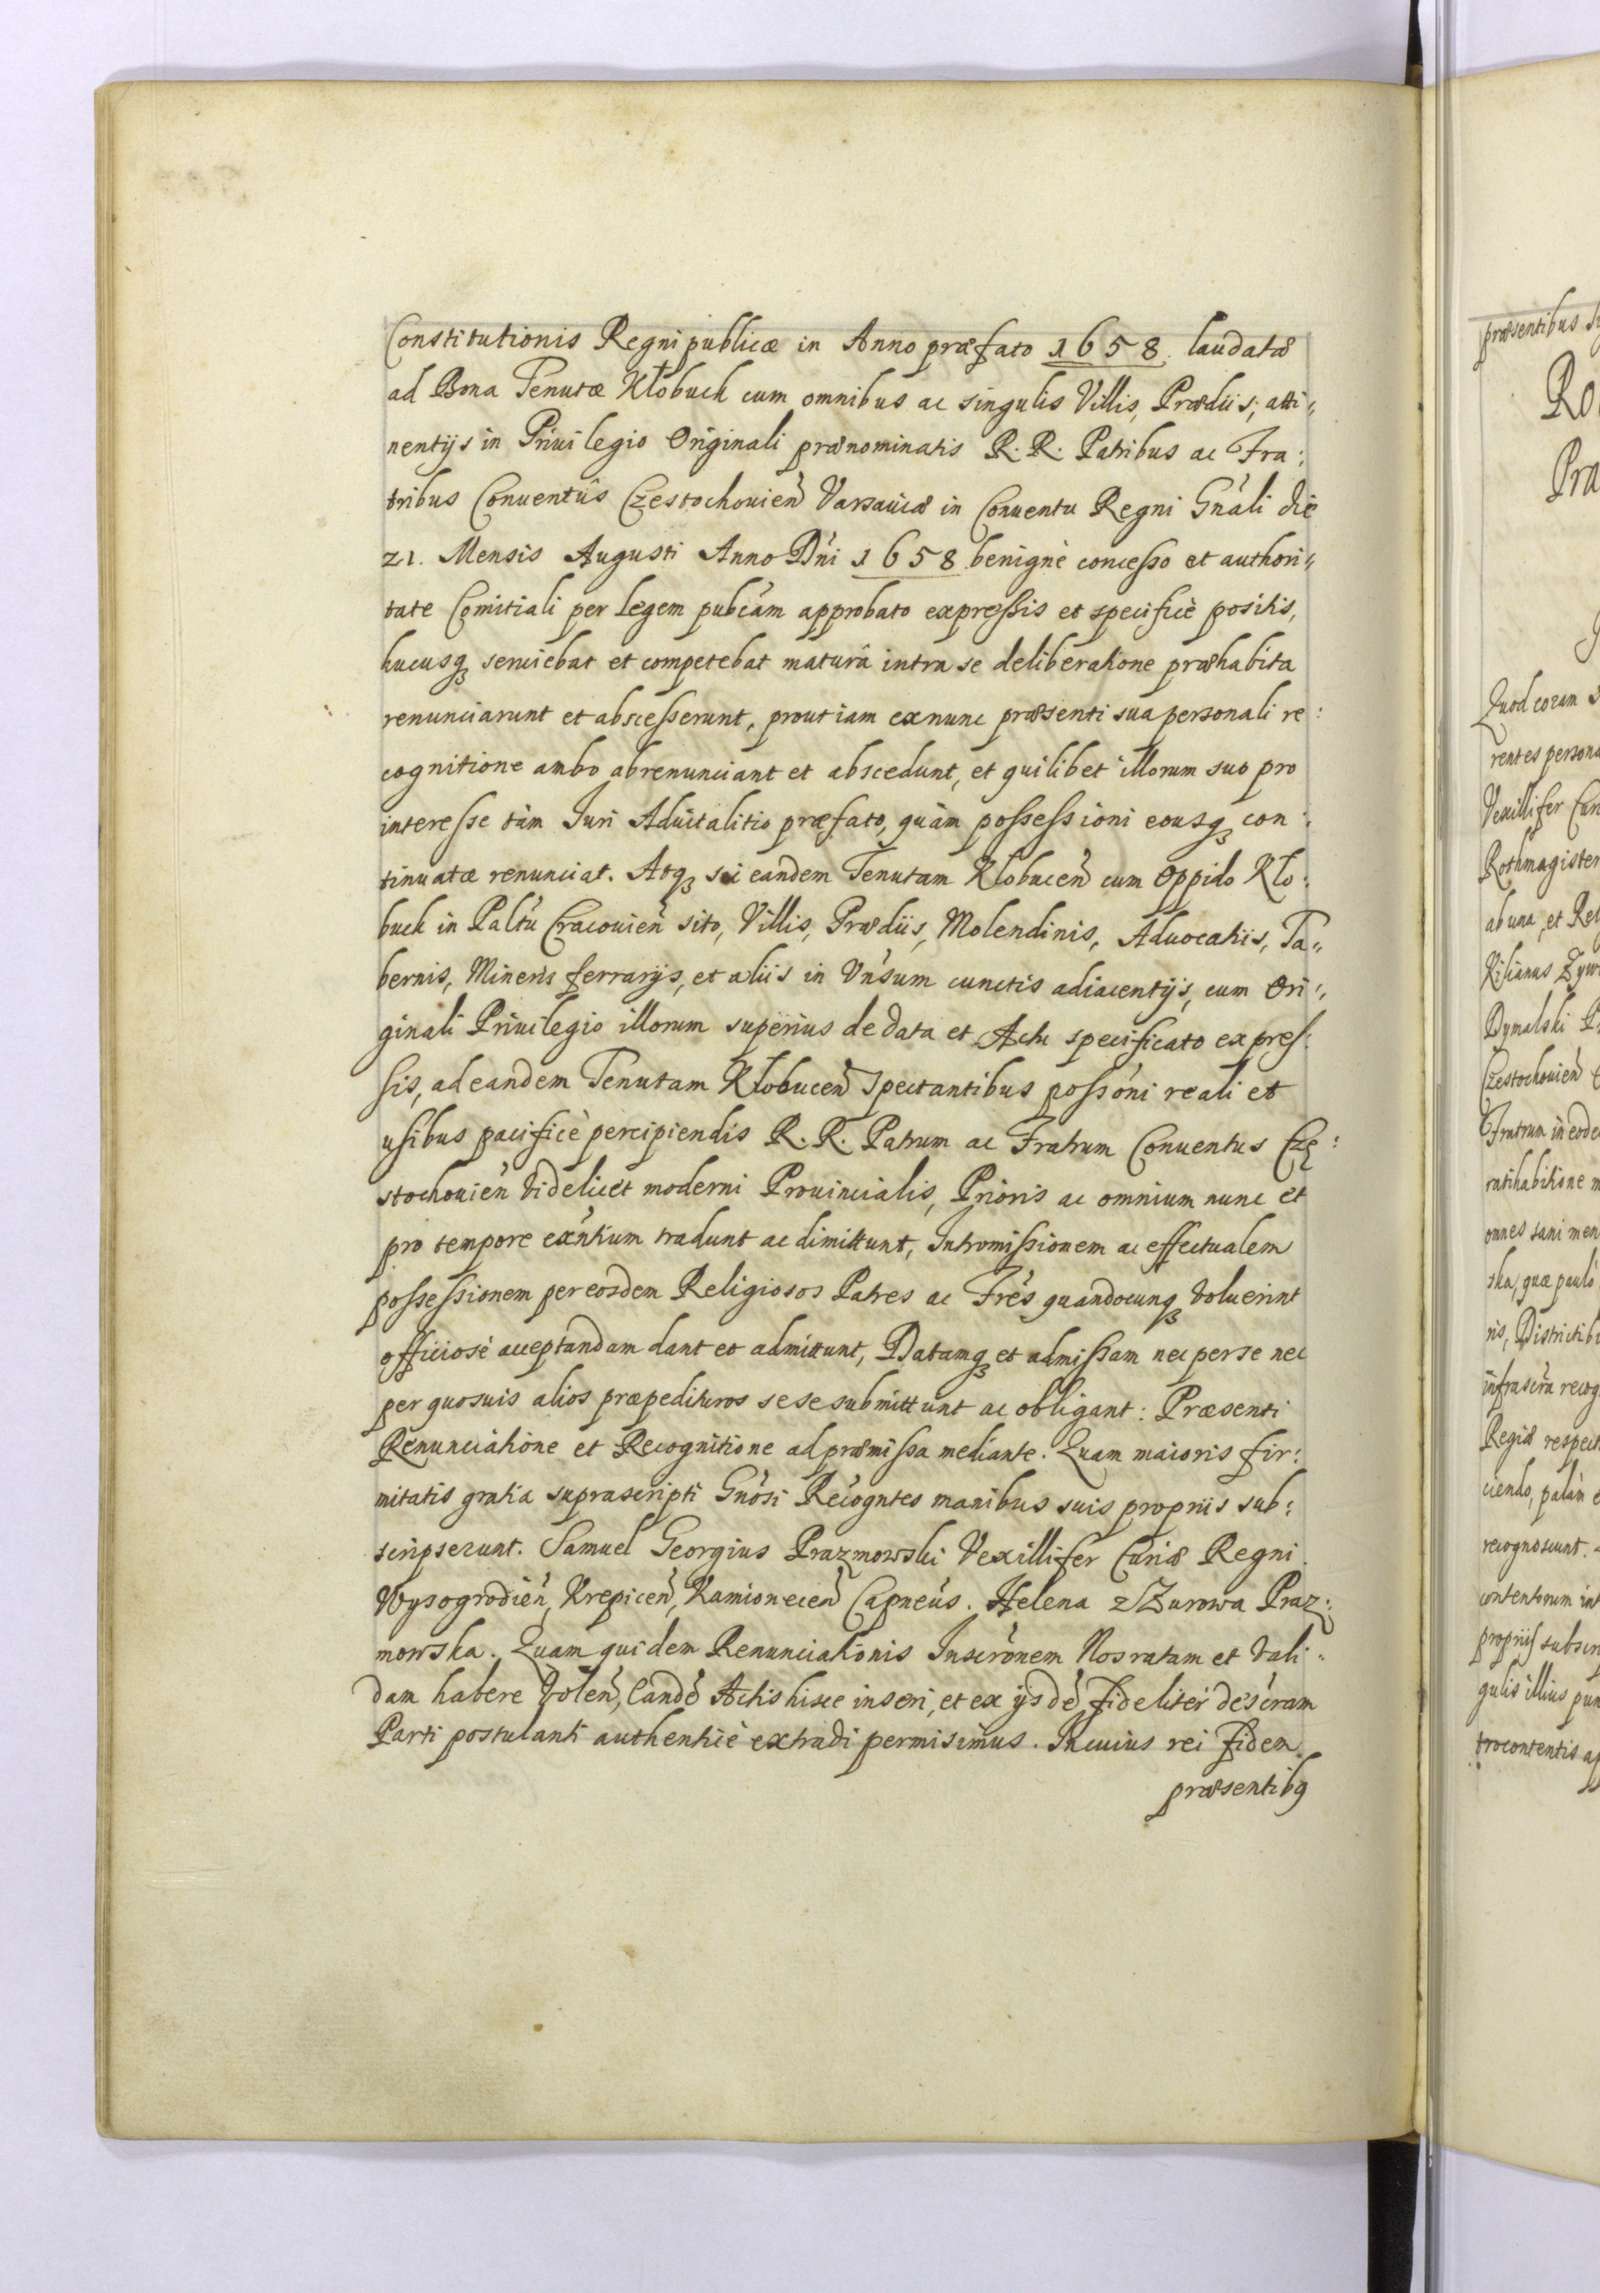 Constitutionis Regni publicæ in Anno præfato 1658. laudatæ
ad Bona Tenutæ Kłobuck cum omnibus ac singulis Villis, Prædiis, atti„
nentijs in Priuilegio Originali prænominatis R. R. Patribus ac Fra:
tribus Conuentûs Czestochouień Varsaviæ in Conuentu Regni Gńali die
21. Mensis Augusti Anno Dńi 1658 benignè concesso et authori„
tate Comitiali per legem pubćam approbato expressis et specificè positis,
hucusq3 seruiebat et competebat maturâ intra se deliberatione præhabita
renunciarunt et abscesserunt, prout iam exnunc præsenti sua personali re:
cognitione ambo abrenunciant et abscedunt, et quilibet illorum suo pro
interesse tàm Juri Aduitalitio præfato, quàm possessioni eousq3 con:
tinuatæ renunciat. Atq3 eandem Tenutam Kłobuceń cum Oppido Kło:
buck in Paltu Cracouień sito, Villis, Prædiis, Molendinis, Aduocatiis, Ta„
bernis, Mineris ferrarijs, et aliis in Vńsum cunctis adiacentijs, cum Ori:
ginali Priuilegio illorum superius de data et Actu specificato expres:
sis, ad eandem Tenutam Kłobuceń spectantibus possóni reali et
usibus pacificè percipiendis R. R. Patrum ac Fratrum Conuentus Czę:
stochouień videlicet moderni Prouincialis, Prioris ac omnium nunc et
pro tempore exńtium tradunt ac dimittunt, Intromissionem ac effectualem
possessionem per eosdem Religiosos Patres ac Frés quandocunq3 voluerint
officiosè acceptandam dant et admittunt, Datamq3 et admissam nec per se nec
per quosuis alios præpedituros sese submittunt ac obligant: Præsenti
Renunciatione et Recognitione ad præmissa mediante. Quam maioris fir:
mitatis gratia suprascripti Gńosi Recogntes manibus suis propriis sub:
scripserunt. Samuel Georgius Prazmowski Vexillifer Curiæ Regni
Wysogrodień, Krepiceń, Kamioneceń Capneús. Helena z Zurowa Praz:
mowska. Quam quidem Renunciationis Inscrónem Nos ratam et vali:
dam habere voleń, Eandé Actis hisce inseri, et ex ijsdé fideliter descram
Parti postulanti authenticè extradi permisimus. In cuius rei fidem
præsentibq
præsentibus
Ro
Pra
Quod coram
rentes persona
Vexillifer Cur
Rothmagister
ab una, et Rel
Kilianus
Dymalski
Czestochouień
Fratrum in eode
ratihabitione
omnes sani men
ska, quæ paulò
ris, Districtib
infrascra recog
Regiæ respect
ciendo, palàm
recognoscunt.
contentorum int
propriis subscr
gulis illius pun
trocontentis